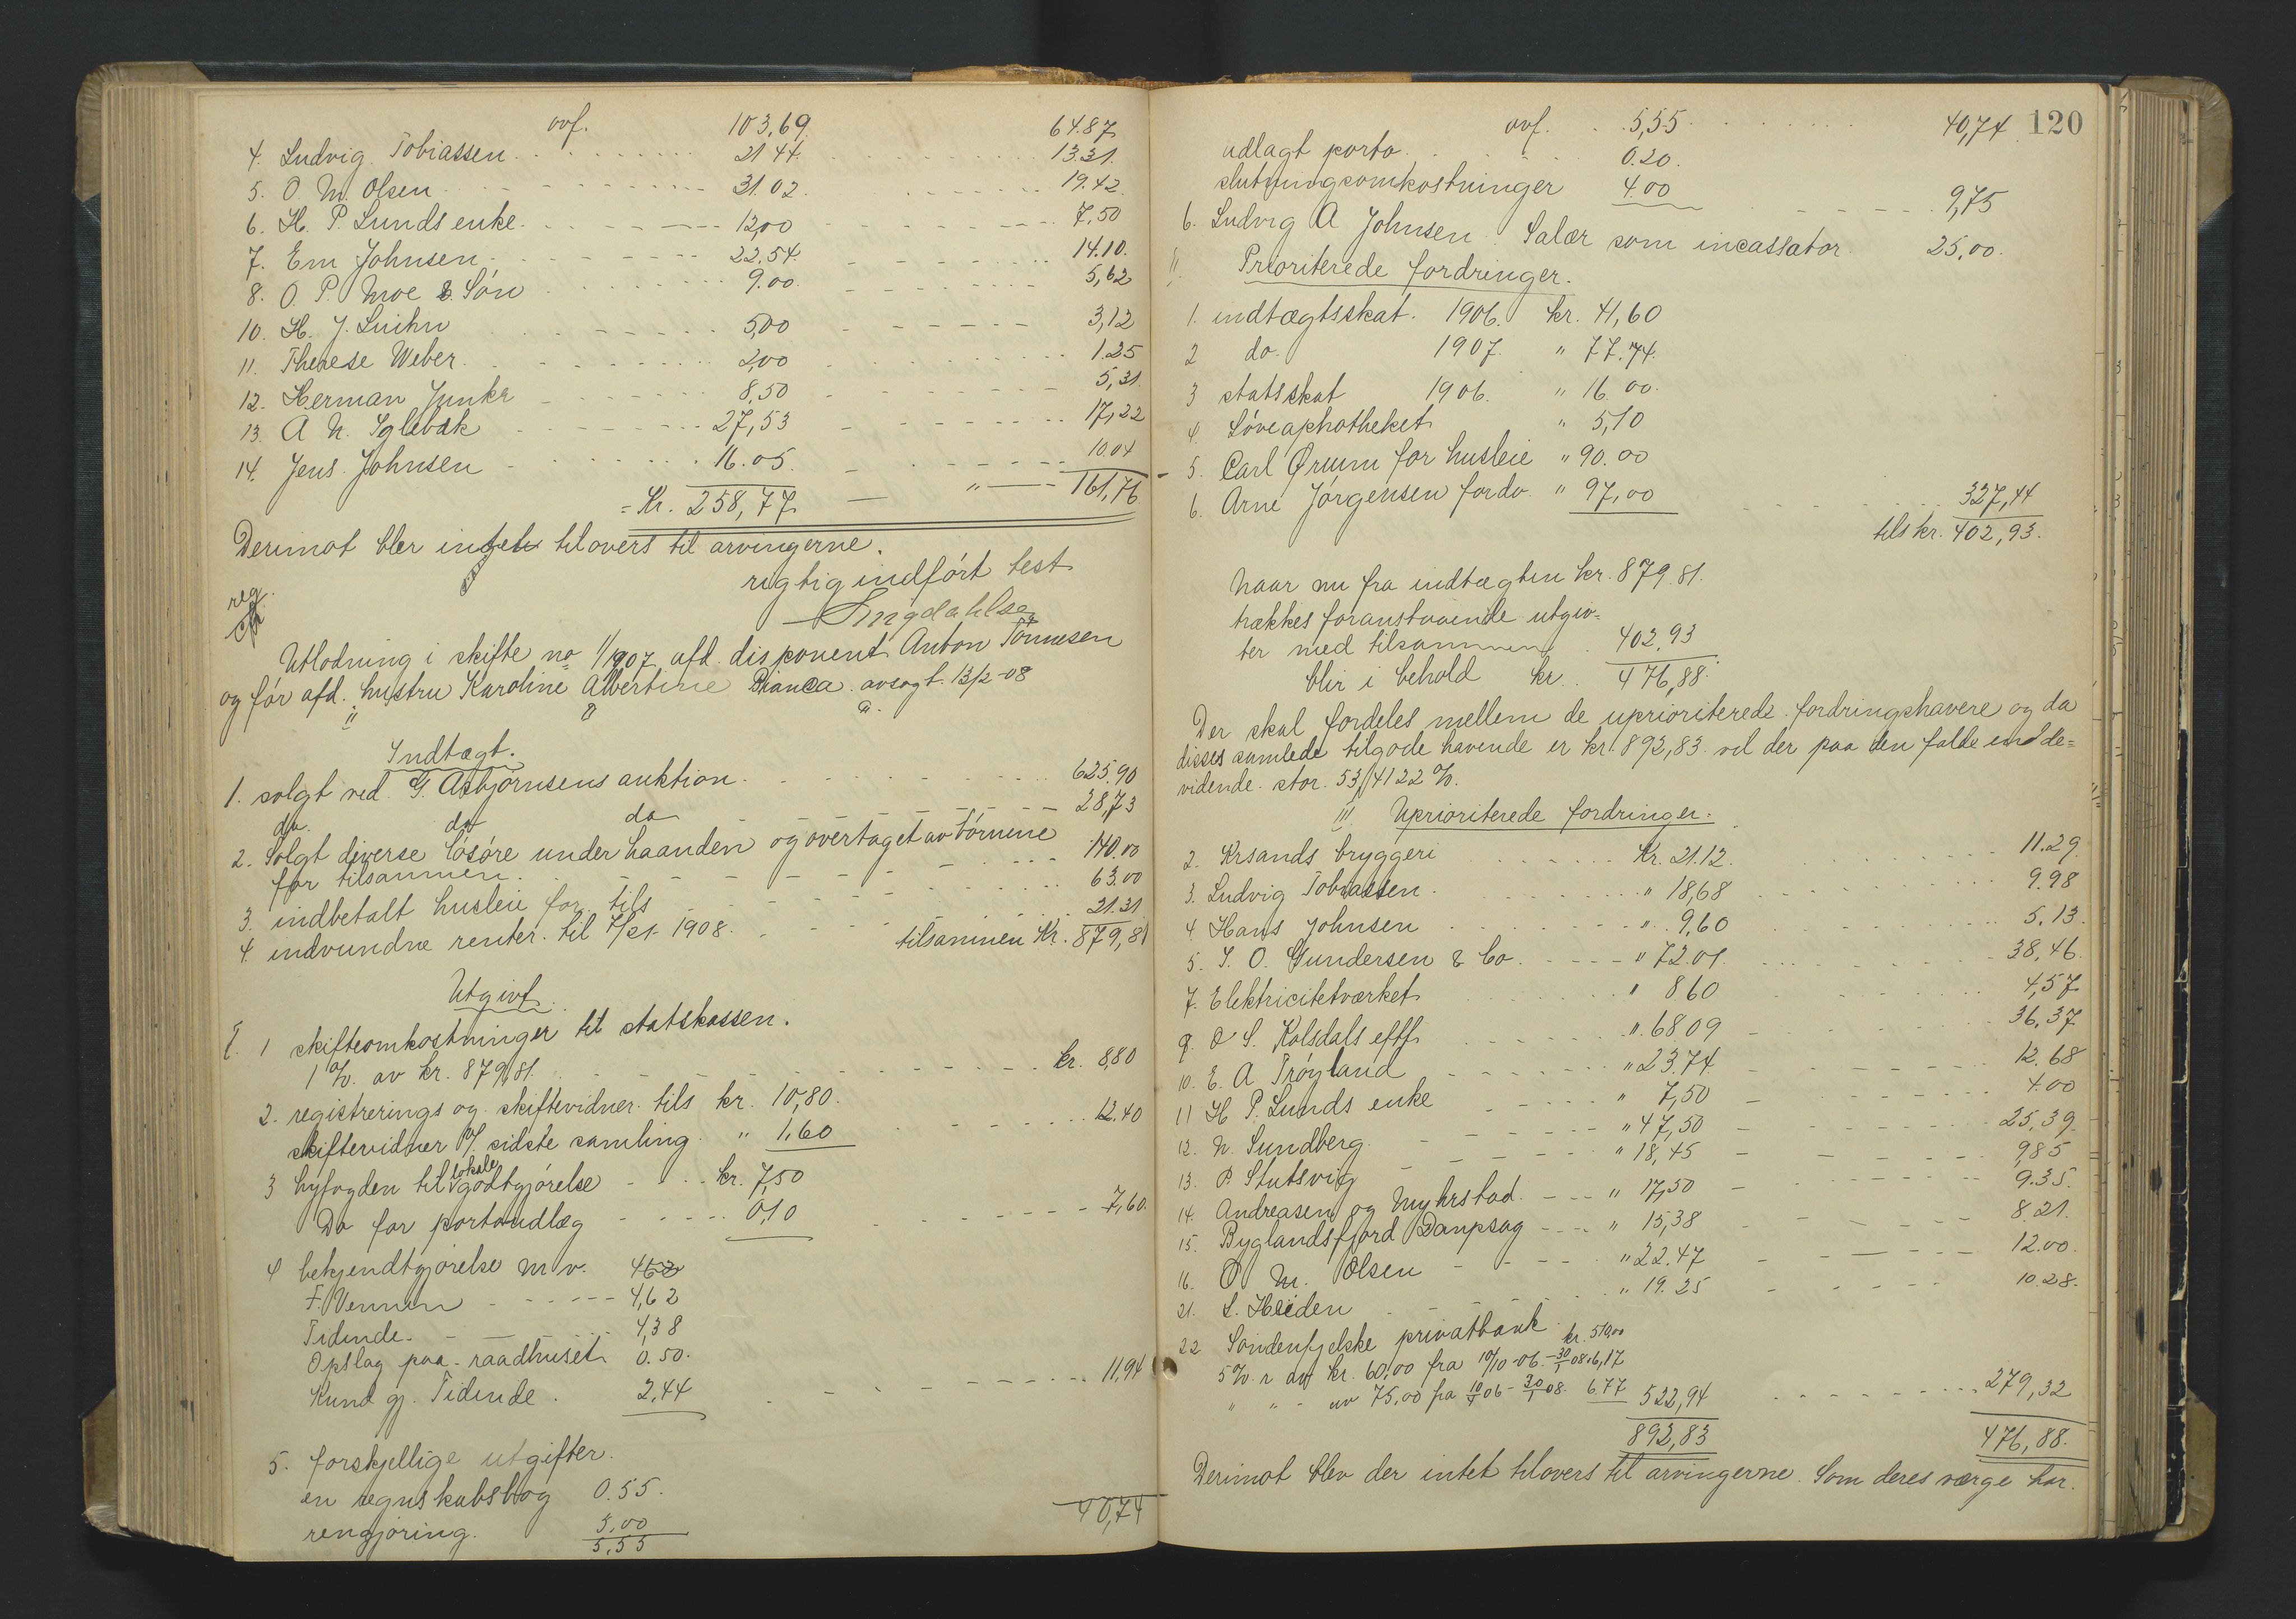 ovf. 103,69 64.87
4. Ludvig Tobiassen 21.44 13.31.
5. O. M. Olsen 31.02. 19.42.
6. H. P. Lunds enke 12,00 7.50
7. Em Johnsen 22.54. 14.10.
8. O. P. Moe & Sön 9.00. 5,62
10. H. J. 5,00 3,12
11. Therese Weber. 2,00 1.25
12. Herman Junke 8,50 5,31.
13. A. N. Iglebæk 27,53 17,22
14. Jens Johnsen 16.05. 10.04
= Kr. 258,77. — " — 161,76
Derimot blev intet tilovers til arvingerne.
rigtig indført test
reg.
Utlodning i skifte no 1/1907 afd. disponent Anton Tönnesen
og før afd. hustru Karoline Albertine Bianca. avsagt. 13/2-08
Indtægt.
1. solgt ved G. Asbjørnsens auktion 625.90
do. do do 28,73
2. Solgt diverse løsøre under haanden og overtaget av børnene
for tilsammen 140.00
3. indbetalt husleie for tils 63.00
4. indvundne renter til 1908. 21.31
tilsammen Kr. 879,81
Utgivt.
I. 1 skifteomkostninger til statskassen.
1 %. av kr. 879,81. kr. 8,80
2. registrerings og skiftevidner tils kr. 10,80.
skiftevidner p/ sidste samling " 1,60 12.40
3 byfogden til lokale godtgjørelse kr. 7,50
Do for portoudlæg 0,10 7,60.
4 bekjendtgjørelse m v. 4,62
F. Vennen 4,62
Tidende. 4,38
Opslag paa raadhuset 0.50.
Kund gj. Tidende. 2,44 11,94
5. forskjellige utgifter.
en regnskabsbog 0.55.
rengjøring. 5.00
5,55 40,74
120
ovf. 5,55 40,74
udlagt porto 0.20.
slutningsomkostninger 4.00 9,75
6. Ludvig A Johnsen Salær som incassator. 25,00.
II. Prioriterede fordringer.
1. indtægtsskat. 1906. kr. 41,60
2 do. 1907. " 77.74.
3 statsskat 1906. " 16.00.
4. Løveaphotheket " 5,10
5. Carl Ørum for husleie " 90.00
6. Arne Jörgensen for do. " 97,00 327,44
tils kr. 402,93.
Naar nu fra indtægten kr. 879.81.
trækkes foranstaaende utgiv=
ter med tilsammen 402,93
blir i behold kr. 476,88.
Der skal fordeles mellem de uprioriterede fordringshavere og da
disses samlede tilgode havende er kr. 892,83 vil der paa den falde en de=
vidende stor. 53,4122 %.
III. Uprioriterede fordringer.
2. Krsands bryggeri Kr. 21.12. 11.29.
3. Ludvig Tobiassen. " 18,68 9.98
4. Hans Johnsen " 9,60 5,13.
5. S. O. Gundersen & Co. " 72.01. 38,46.
7. Elektricitetværket " 8.60 4,57
9. O S. Kolsdals efff. " 68.09 36,37
10. E. A Trøyland " 23.74 12.68
11 H P. Lunds enke " 7,50 4.00
12. N. Sundberg " 47,50 25,39.
13. P. Stutsvig " 18,45 9,85
14. Andreasen og Myhrstad. " 17,50 9.35.
15. Byglandsfjord Dampsag " 15,38 8.21.
16. O M. Olsen " 22.47 12.00.
21. L. Heiden " 19.25 10.28.
22 Søndenfjelske privatbank kr. 510,00
5 %. r av kr. 60,00 fra 10/10-06 - 30/1 08. 6,17
" " - av 75,00 fra 10/4 06 - 30/1 08. 6.77 522,94 279,32
892,83 476,88.
Derimot blev der intet tilovers til arvingerne. Som deres værge har.